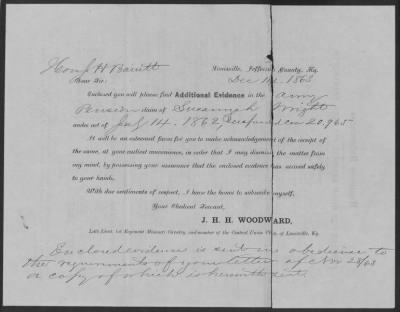 Louisville, Jefferson County, Ky.
Hon J H Barrett Dec 14, 1863
Dear Sir:
Enclosed you will please find Additional Evidence in the army
Pension claim of Susannah Wright
under act of July 14. 1862, 20,965
It will be an esteemed favor for you to make acknowledgement of the receipt of
the same, at your earliest convenience, in order that I may dismiss the matter from
my mind, by possessing your assurance that the enclosed evidence has passed safely
to your hands.
With due sentiments of respect, I have the honor to subscribe myself,
Your Obedient Servant,
J. H. H. WOODWARD,
Late Lieut. 1st Regiment Missouri Cavalry, and member of the Central Union Club, of Louisville, Ky.
Enclosed evidence is sent in obedience to
the requirements of your letter of Nov 28/63
a copy of which is herewith sent.